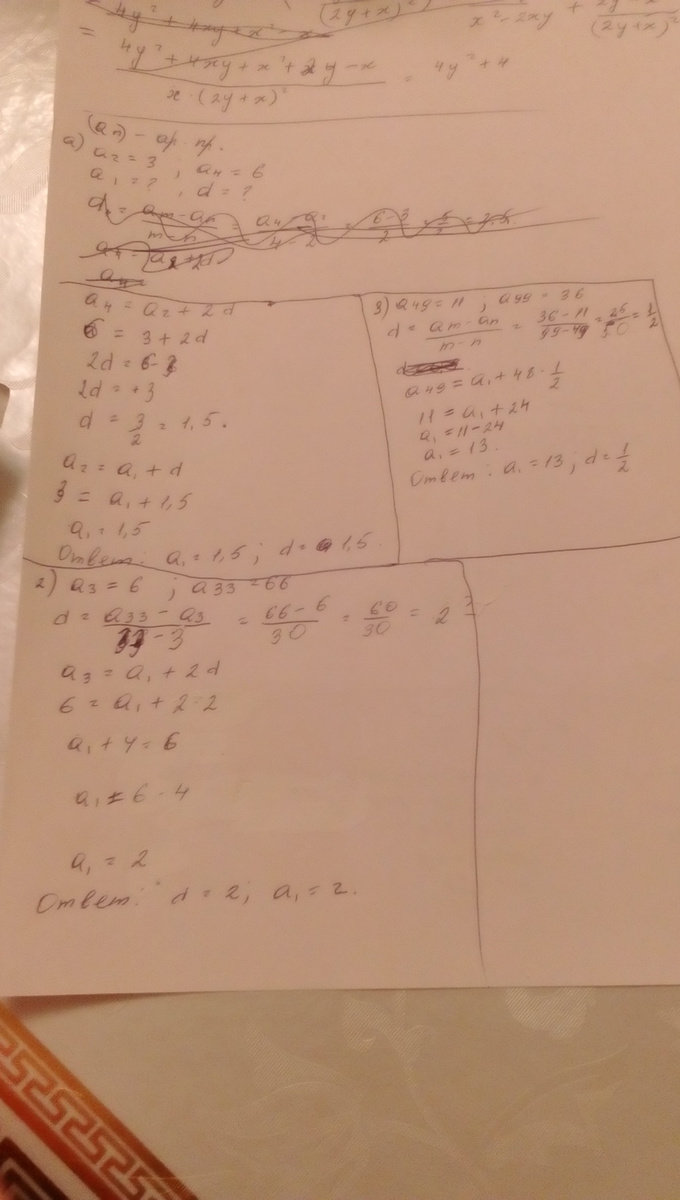 4y² + 4xy + x² - x
(2y+x)
x² - 2xy +
(2y+x)²
= 4y² + 4xy + x² + 2y - x = 4y² + 4
x · (2y+x)²
(an) - ар. пр.
a) a₂ = 3 ; a₄ = 6
a₁ = ? , d = ?
d = am - an / m - n = a₄ - a₂ / 4 - 2 = 6-3 / 2
a₄ = a₂ + 2d
a₄ =
a₄ = a₂ + 2d
6 = 3 + 2d
2d = 6-3
2d = +3
d = 3/2 = 1,5.
a₂ = a₁ + d
3 = a₁ + 1,5
a₁ = 1,5
Ответ: a₁ = 1,5 ; d = 1,5.
3) a49 = 11 ; a99 = 36
d = am - an / m - n = 36 - 11 / 99 - 49 = 25/50 = 1/2
a49 = a₁ + 48 · 1/2
11 = a₁ + 24
a₁ = 11 - 24
a₁ = 13.
Ответ: a₁ = 13 ; d = 1/2
2) a₃ = 6 ; a33 = 66
d = a33 - a3 / 33 - 3 = 66 - 6 / 30 = 60/30 = 2
a₃ = a₁ + 2d
6 = a₁ + 2·2
a₁ + 4 = 6
a₁ = 6 - 4
a₁ = 2
Ответ: d = 2; a₁ = 2.